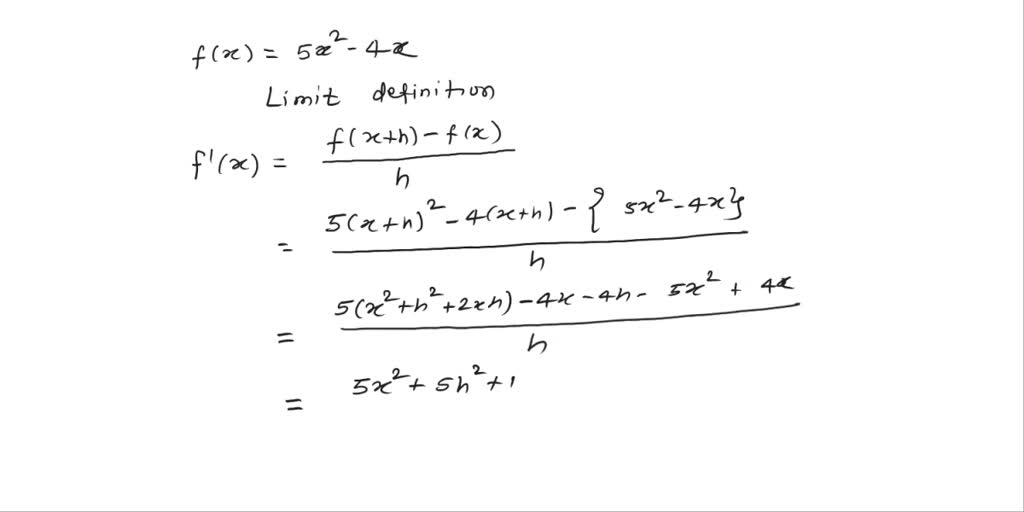 f(x) = 5x² - 4x
Limit definition
f'(x) = \frac{f(x+h) - f(x)}{h}
= \frac{5(x+h)² - 4(x+h) - { 5x² - 4x}}{h}
= \frac{5(x² + h² + 2xh) - 4x - 4h - 5x² + 4x}{h}
= 5x² + 5h² + 1